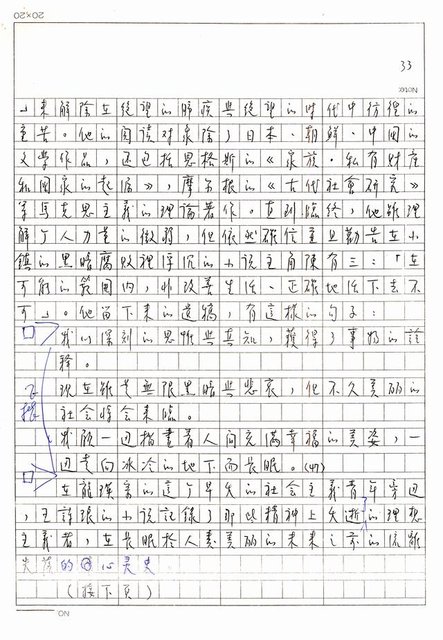 20×20
33
Note:
」來解除在絕望的肺疾與絕望的時代中彷徨的
童苦。他的閱讀对象除了日本、朝鮮、中國的
文學作品,还包括恩格斯的《家族·私有財产
和國家的起源》,摩尔根的《古代社會研究》
等馬克思主義的理論著作。直到臨終,他雖理
解了人力量的微弱,但依然確信並且勸告在小
鎮的黑暗腐敗裡浮沉的小說主角陳有三:「在
可能的範圍內,非改善生活、正確地活下去不
可」。他留下來的遺稿,有這樣的句子:
我以深刻的思惟與真知,獲得了事物的詮
釋。
現在雖是無限黑暗與悲哀,但不久美丽的
社会將会来臨。
我願一边描畫着人间充滿幸福的美姿,一
边走向冰冷的地下而長眠。(47)
在龍瑛宗的這个早夭的社会主義青年旁边
,王詩琅的小說記錄了那些精神上失逝的理想
主義者,在長眠於人类美丽的未来之前的流離
失
的心灵史
(接下頁)
NO.